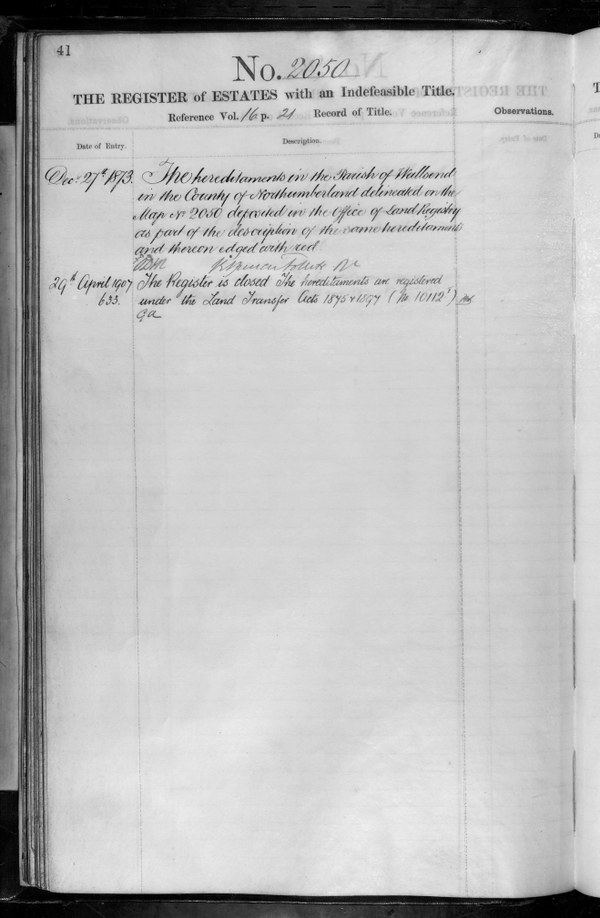 41
No. 2050
THE REGISTER of ESTATES with an Indefeasible Title.
Reference Vol. 16 p. 21 Record of Title.
Observations.
Date of Entry.
Description.
Decr 27th 1873. The hereditaments in the Parish of Wallsend
in the County of Northumberland delineated on the
Map No 2050 deposited in the Office of Land Registry
as part of the description of the same hereditaments
and thereon edged with red
Follett
29th April 1907 The Register is closed The hereditaments are registered
633. under the Land Transfer Acts 1875 & 1897 (No 10112)